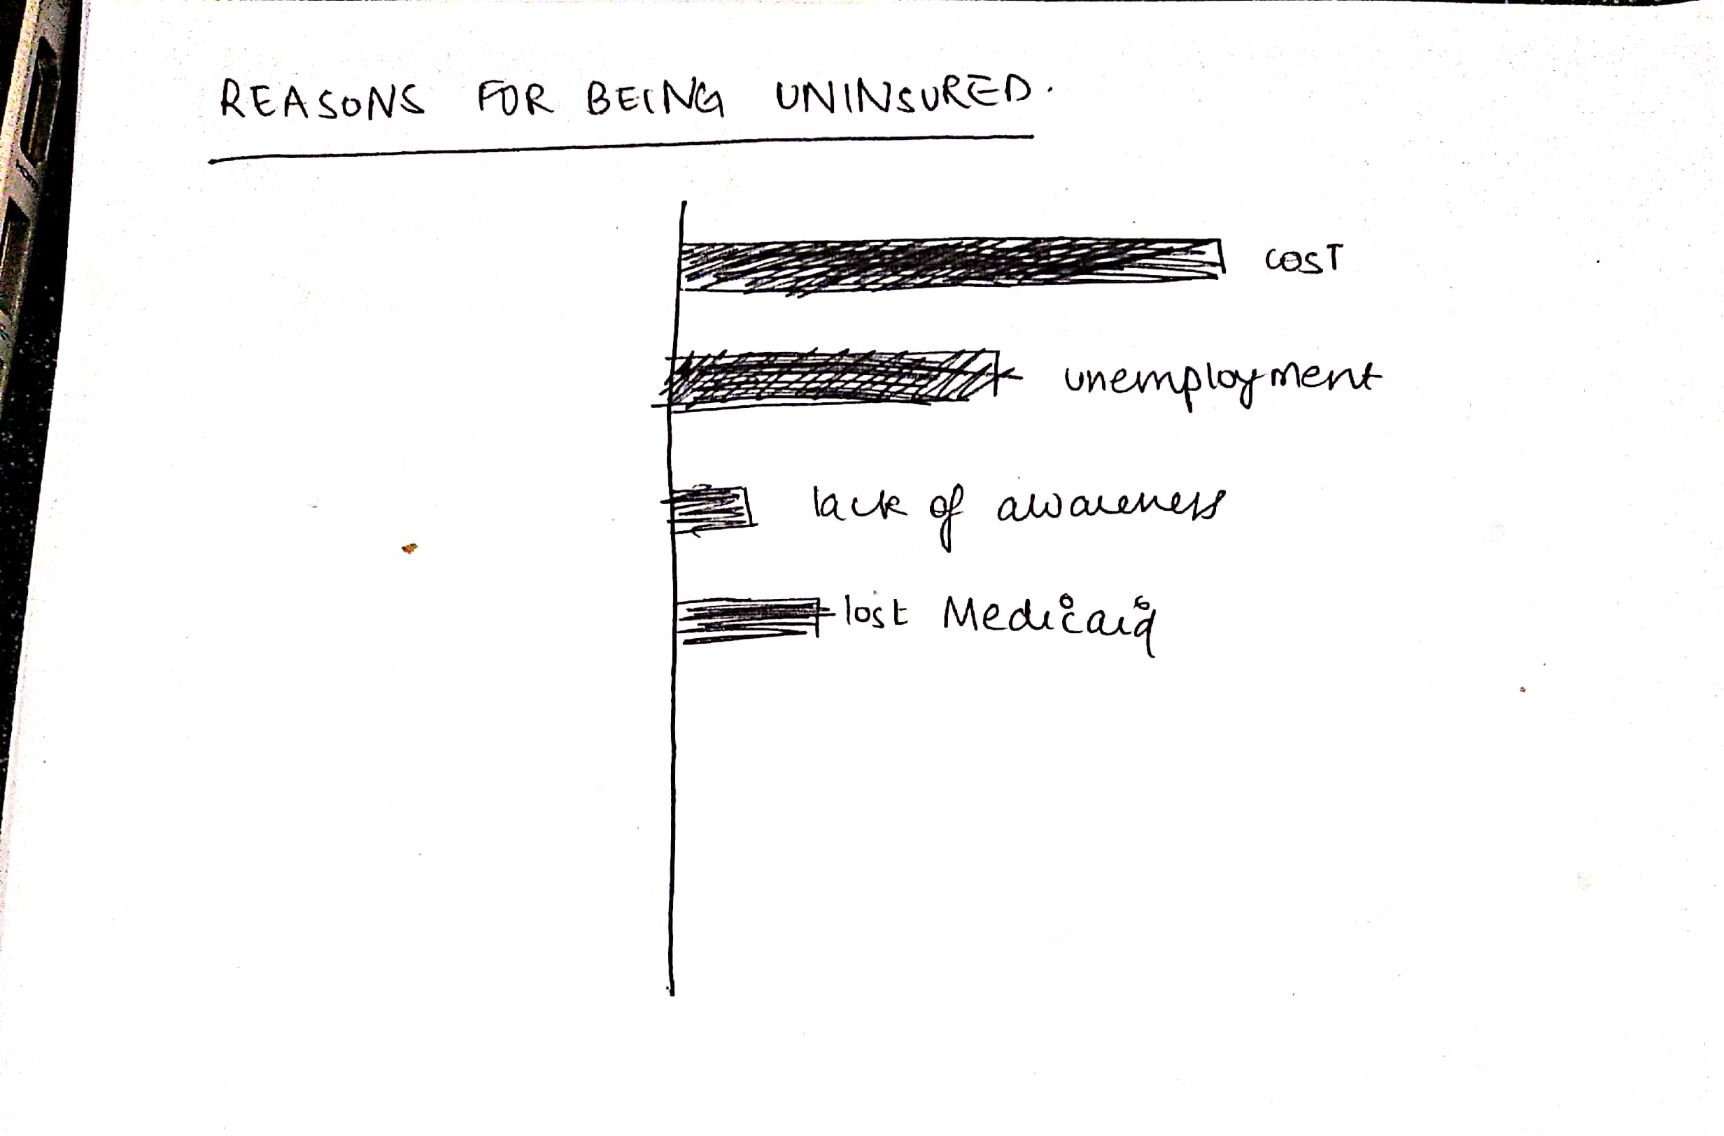 REASONS FOR BEING UNINSURED.
COST
unemployment
lack of awareness
lost Medicaid